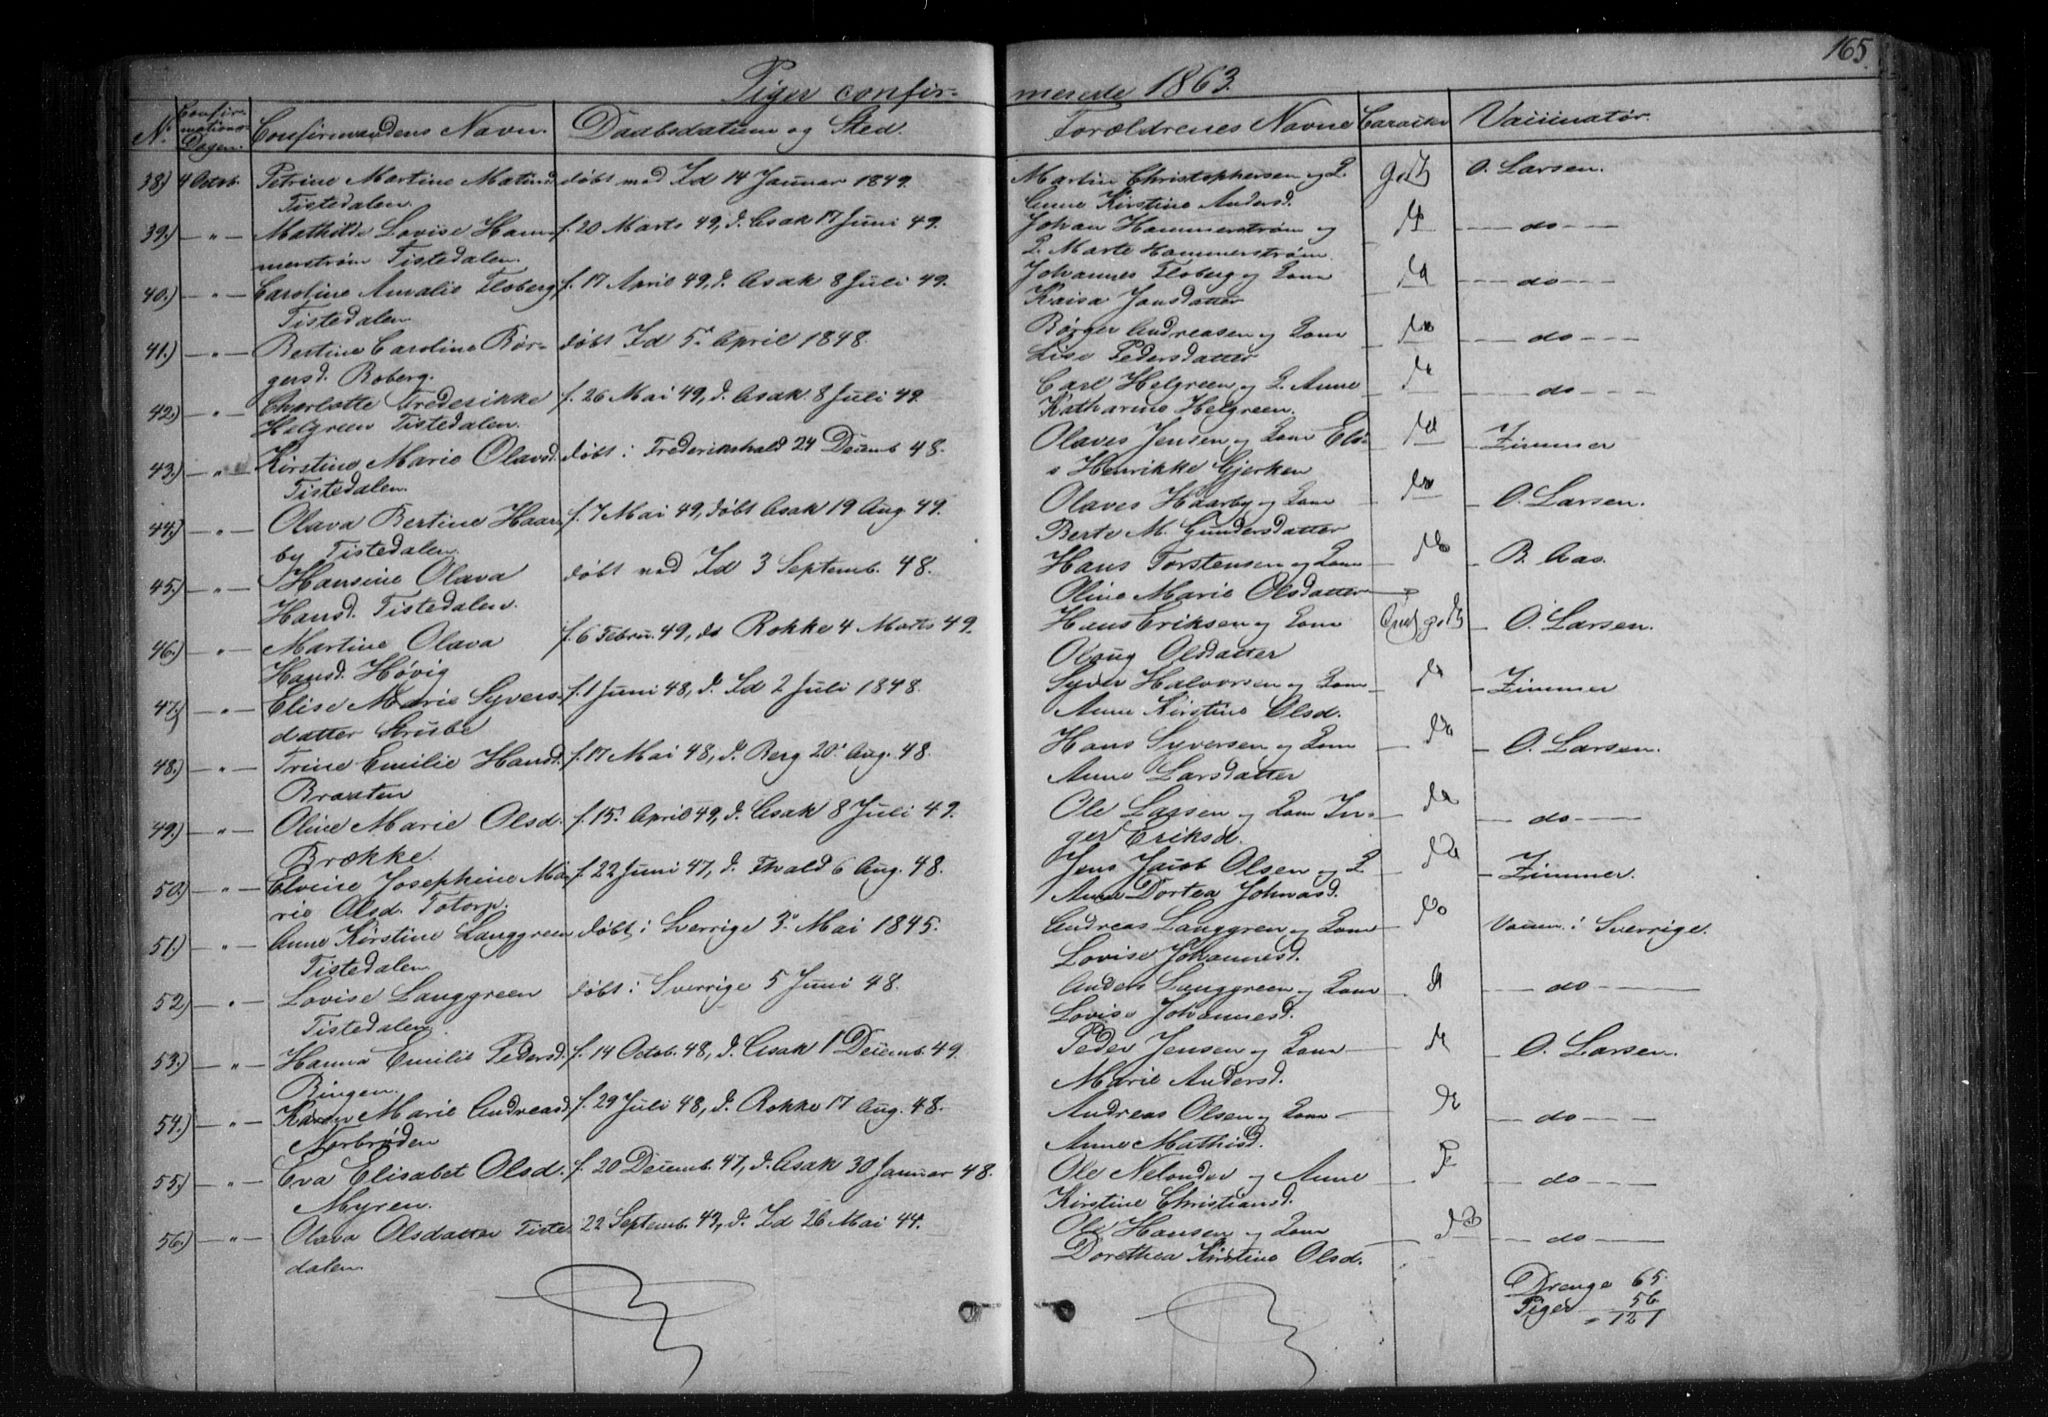 165.
Piger confir- merede 1863.
No. Confirmations-Dagen. Confirmandens Navn. Daabsdatum og Sted. Forældrenes Navne Caracter Vaccinatør.
38.) 4 Octob. Petrine Martine Matind døbt ved Id 14 Januar 1849. Martin Christophersen og Q. g. t. B O. Larsen.
Tistedalen. Anne Kirstine Andersd.
39.) — " — Mathilde Lovise Ham- f. 20 Marts 49, d. Asak 17 Juni 49. Johan Hammerstrøm og do — do —
merstrøm Tistedalen. Q. Marte Hammerstrøm.
40.) — " — Caroline Amalie Floberg f. 17 April 49, d. Asak 8 Juli 49. Johannes Floberg og Qone do — do —
Tistedalen Kaisa Jansdatter
41.) — " — Bertine Caroline Bør- døbt Id 5. April 1848. Børger Andreasen og Qone do — do —
gersd. Roberg. Lise Pedersdatter
42.) — " — Charlotte Frederikke f. 26 Mai 49, d. Asak 8 Juli 49. Carl Helgreen og Q. Anne do — do —
Helgreen Tistedalen. Katharine Helgreen.
43.) — " Kirstine Marie Olavsd. døbt i Frederikshald 24 Decemb. 48. Olaves Jensen og Qone Eli- do — Zimmer
Tistedalen. s Henrikke Gjerken
44.) — " — Olava Bertine Haar- f. 7 Mai 49, døbt Asak 19 Aug. 49. Olaves Haarby og Qone do — O. Larsen.
by Tistedalen. Berte M. Gundersdatter
45.) — " — Hansine Olava døbt ved Id 3 Septemb. 48. Hans Torstensen og Qone do — B. Aas.
Hansd. Tistedalen. Oline Marie Olsdatter
46.) — " — Martine Olava f. 6 Febru. 49, do Rokke 4 Marts 49. Hans Eriksen og Qone — O. Larsen.
Hansd. Høvig Olaug Olsdatter
47.) — " — Elise Marie Syvers- f. 1 Juni 48, d. Id 2 Juli 1848. Syver Halvorsen og Qone do — Zimmer
datter Strube Anne Kirstine Olsd.
48.) — " — Trine Emilie Hansd. f. 17 Mai 48, d. Berg 20. Aug. 48. Hans Syversen og Qone do — O. Larsen.
Braaten Anne Larsdatter
49.) — " — Oline Marie Olsd. f. 15. April 49, d. Asak 8 Juli 49. Ole Larsen og Qone In- do — do —
Brække. ger Eriksd.
50.) — " — Elvine Josephine Ma- f. 22 Juni 47, d. Fhald 6 Aug. 48. Jens Jacob Olsen og Q do — Zimmer.
rie Olsd. Totorp. Anne Dortea Johnasd.
51.) — " — Anne Kirstine Langgreen døbt i Sverrige 3. Mai 1845. Andreas Langgren og Qone do Vaccin. i Sverrige.
Tistedalen. Lovise Johannesd.
52.) — " — Lovise Langgreen døbt i Sverrige 5 Juni 48. Anders Langgreen og Qone do — do —
Tistedalen. Lovise Johannesd.
53.) — " — Hanna Emilie Pedersd. f. 14 Octob. 48, d. Asak 1 Decemb. 49. Peder Jensen og Qone do — O. Larsen.
Bingen. Marie Andersd.
54.) — " — Karen Marie Andreasd. f. 29 Juli 48, d. Rokke 17 Aug. 48. Andreas Olsen og Qone do — do —
Norbrøden Anne Mathisd.
55.) — " — Eva Elisabet Olsd. f. 20 Decemb. 47, d. Asak 30 Januar 48. Ole Nelander og Anne — do —
Myren. Kirstine Christiansd.
56.) — " — Olava Olsdatter Tiste- 22 Septemb. 43, d. Id 26 Mai 44. Ole Hansen og Qone — do —
dalen. Dorethea Kirstine Olsd.
Drenge 65.
Piger 56
= 121